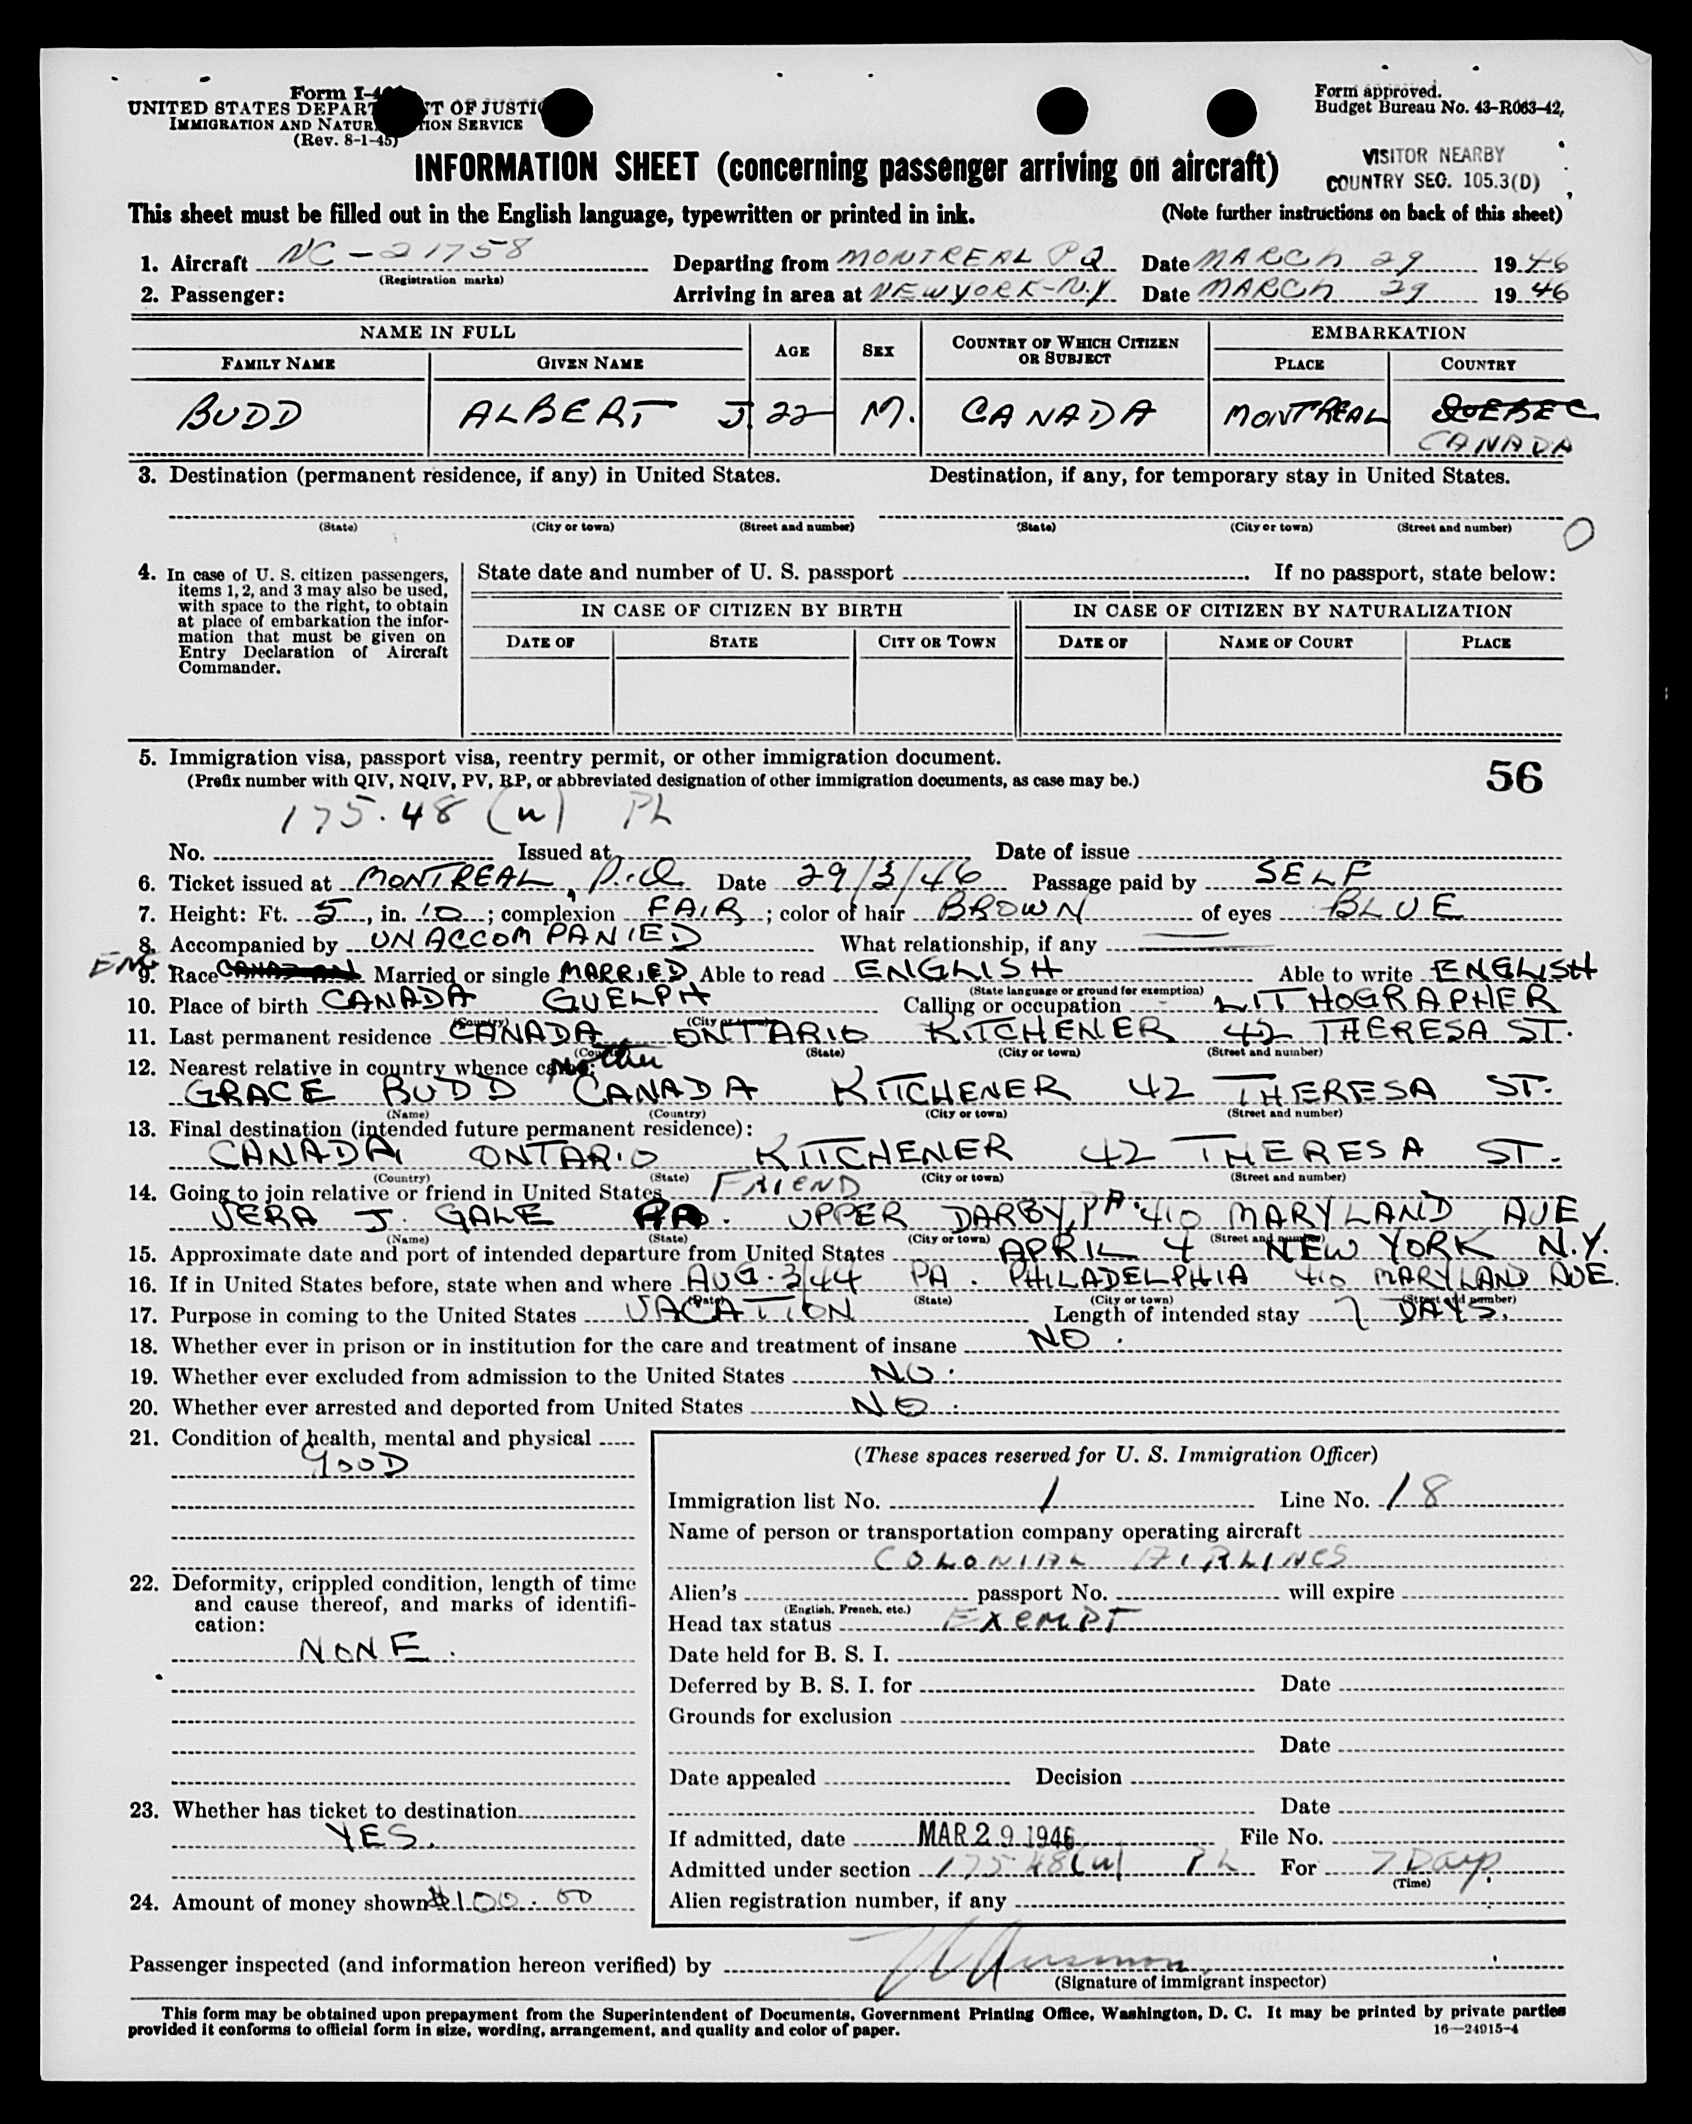 Form I-4
UNITED STATES DEPART T OF JUSTI
IMMIGRATION AND NATUR TION SERVICE
(Rev. 8-1-45)
Form approved.
Budget Bureau No. 43-R063-42.
INFORMATION SHEET (concerning passenger arriving on aircraft)
VISITOR NEARBY
COUNTRY SEC. 105.3(D)
This sheet must be filled out in the English language, typewritten or printed in ink. (Note further instructions on back of this sheet)
1. Aircraft NC-21758 Departing from MONTREAL PQ Date MARCH 29 1946
(Registration marks)
2. Passenger: Arriving in area at NEW YORK-N.Y Date MARCH 29 1946
NAME IN FULL AGE SEX COUNTRY OF WHICH CITIZEN OR SUBJECT EMBARKATION
FAMILY NAME GIVEN NAME PLACE COUNTRY
BUDD ALBERT J. 22 M. CANADA MONTREAL QUEBEC
CANADA
3. Destination (permanent residence, if any) in United States. Destination, if any, for temporary stay in United States.
(State) (City or town) (Street and number) (State) (City or town) (Street and number)
O
4. In case of U. S. citizen passengers, items 1, 2, and 3 may also be used, with space to the right, to obtain at place of embarkation the information that must be given on Entry Declaration of Aircraft Commander.
State date and number of U. S. passport . If no passport, state below:
IN CASE OF CITIZEN BY BIRTH IN CASE OF CITIZEN BY NATURALIZATION
DATE OF STATE CITY OR TOWN DATE OF NAME OF COURT PLACE
5. Immigration visa, passport visa, reentry permit, or other immigration document.
(Prefix number with QIV, NQIV, PV, RP, or abbreviated designation of other immigration documents, as case may be.)
56
175.48 (u) PL
No. Issued at Date of issue
6. Ticket issued at MONTREAL, P.Q Date 29/3/46 Passage paid by SELF
7. Height: Ft. 5, in. 10; complexion FAIR; color of hair BROWN of eyes BLUE
8. Accompanied by UNACCOMPANIED What relationship, if any
ENG.
9. Race CANADIAN Married or single MARRIED Able to read ENGLISH Able to write ENGLISH
(State language or ground for exemption)
10. Place of birth CANADA GUELPH Calling or occupation LITHOGRAPHER
(Country) (City or town)
11. Last permanent residence CANADA ONTARIO KITCHENER 42 THERESA ST.
(Country) (State) (City or town) (Street and number)
12. Nearest relative in country whence came: Mother
GRACE BUDD CANADA KITCHENER 42 THERESA ST.
(Name) (Country) (City or town) (Street and number)
13. Final destination (intended future permanent residence):
CANADA, ONTARIO KITCHENER 42 THERESA ST.
(Country) (State) (City or town) (Street and number)
14. Going to join relative or friend in United States FRIEND
VERA J. GALE PA. UPPER DARBY, PA. 410 MARYLAND AVE
(Name) (State) (City or town) (Street and number)
15. Approximate date and port of intended departure from United States APRIL 4 NEW YORK N.Y.
16. If in United States before, state when and where AUG. 3/44 PA. PHILADELPHIA 410 MARYLAND AVE.
(Date) (State) (City or town) (Street and number)
17. Purpose in coming to the United States VACATION Length of intended stay 7 DAYS.
18. Whether ever in prison or in institution for the care and treatment of insane NO.
19. Whether ever excluded from admission to the United States NO.
20. Whether ever arrested and deported from United States NO.
21. Condition of health, mental and physical
GOOD
22. Deformity, crippled condition, length of time and cause thereof, and marks of identification:
NONE.
23. Whether has ticket to destination
YES.
24. Amount of money shown $100.00
(These spaces reserved for U. S. Immigration Officer)
Immigration list No. 1 Line No. 18
Name of person or transportation company operating aircraft
COLONIAL AIRLINES
Alien's passport No. will expire
(English, French, etc.)
Head tax status EXEMPT
Date held for B. S. I.
Deferred by B. S. I. for Date
Grounds for exclusion
Date
Date appealed Decision
Date
If admitted, date MAR 29 1946 File No.
Admitted under section 175.48(u) PL For 7 Days
(Time)
Alien registration number, if any
Passenger inspected (and information hereon verified) by
(Signature of immigrant inspector)
This form may be obtained upon prepayment from the Superintendent of Documents, Government Printing Office, Washington, D. C. It may be printed by private parties
provided it conforms to official form in size, wording, arrangement, and quality and color of paper.
16—24915-4